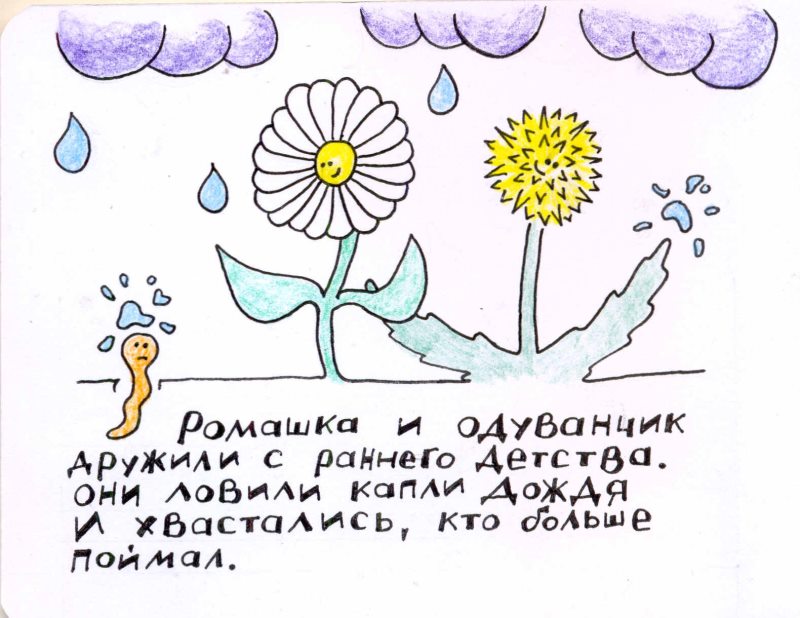 Ромашка и одуванчик
дружили с раннего детства.
они ловили капли дождя
и хвастались, кто больше
поймал.